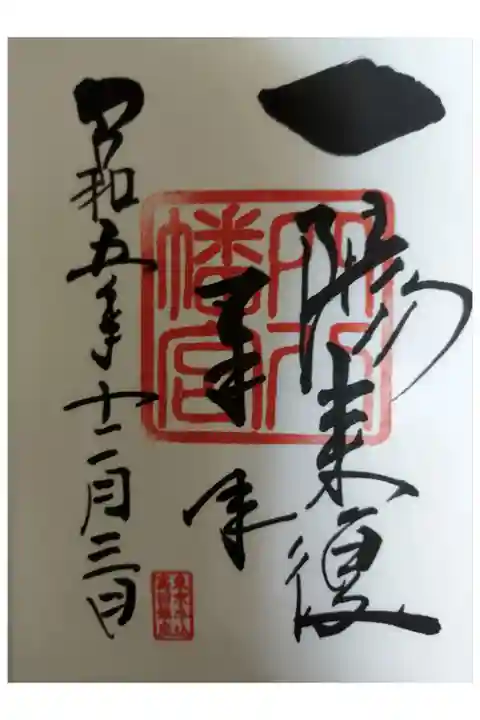 一陽来復
穴八幡宮
令和五年十二月三日